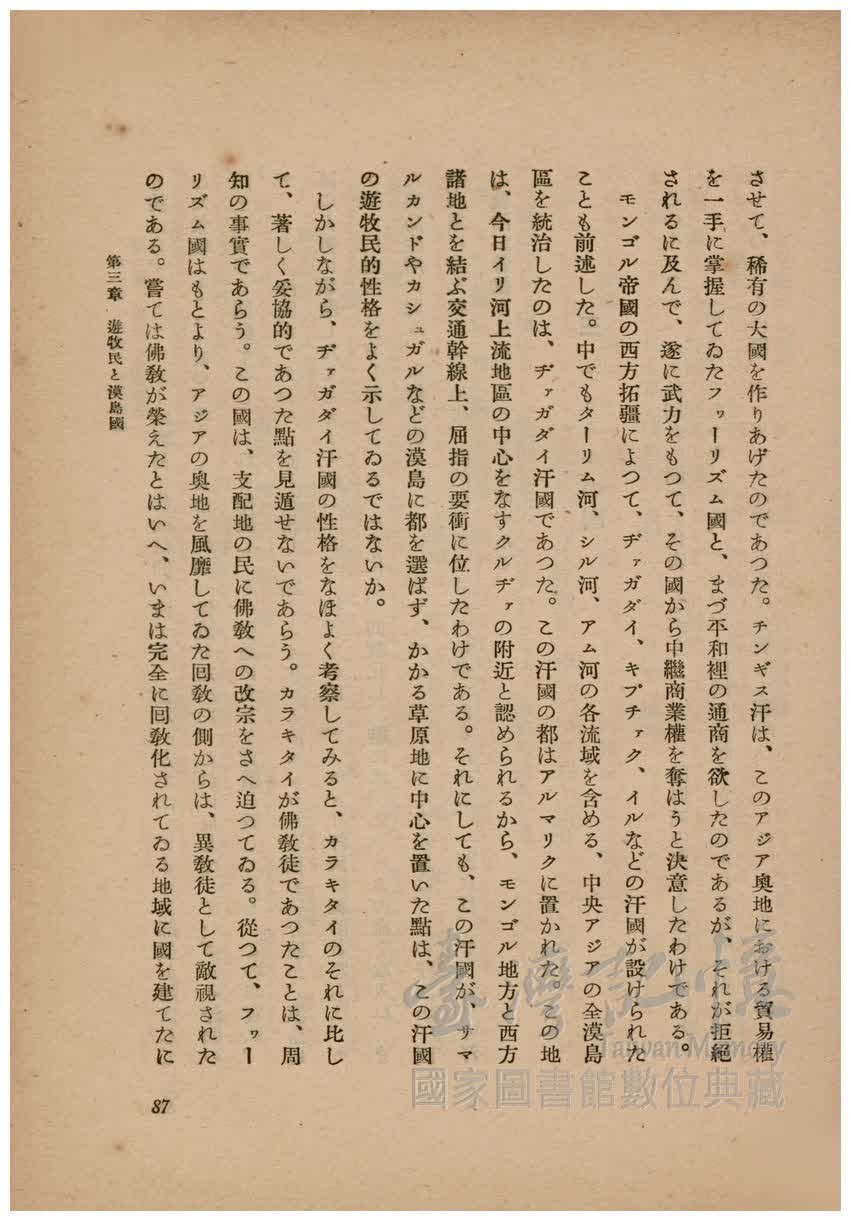 させて、稀有の大國を作りあげたのであつた。チンギス汗は、このアジア奧地における貿易權
を一手に掌握してゐたフワーリズム國と、まづ平和裡の通商を欲したのであるが、それが拒絕
されるに及んで、遂に武力をもつて、その國から中繼商業權を奪はうと決意したわけである。
モンゴル帝國の西方拓疆によつて、ヂァガダイ、キプチァク、イルなどの汗國が設けられた
ことも前述した。中でもターリム河、シル河、アム河の各流域を含める、中央アジアの全漠島
區を統治したのは、ヂァガダイ汗國であつた。この汗國の都はアルマリクに置かれた。この地
は、今日イリ河上流地區の中心をなすクルヂァの附近と認められるから、モンゴル地方と西方
諸地とを結ぶ交通幹線上、屈指の要衝に位したわけである。それにしても、この汗國が、サマ
ルカンドやカシュガルなどの漠島に都を選ばず、かかる草原地に中心を置いた點は、この汗國
の遊牧民的性格をよく示してゐるではないか。
しかしながら、ヂァガダイ汗國の性格をなほよく考察してみると、カラキタイのそれに比し
て、著しく妥協的であつた點を見遁せないであらう。カラキタイが佛敎徒であつたことは、周
知の事實であらう。この國は、支配地の民に佛敎への改宗をさへ迫つてゐる。從つて、フワー
リズム國はもとより、アジアの奧地を風靡してゐた回敎の側からは、異敎徒として敵視された
のである。嘗ては佛敎が榮えたとはいへ、いまは完全に回敎化されてゐる地域に國を建てたに
第三章　遊牧民と漠島國
87
臺灣記憶
Taiwan Memory
國家圖書館數位典藏